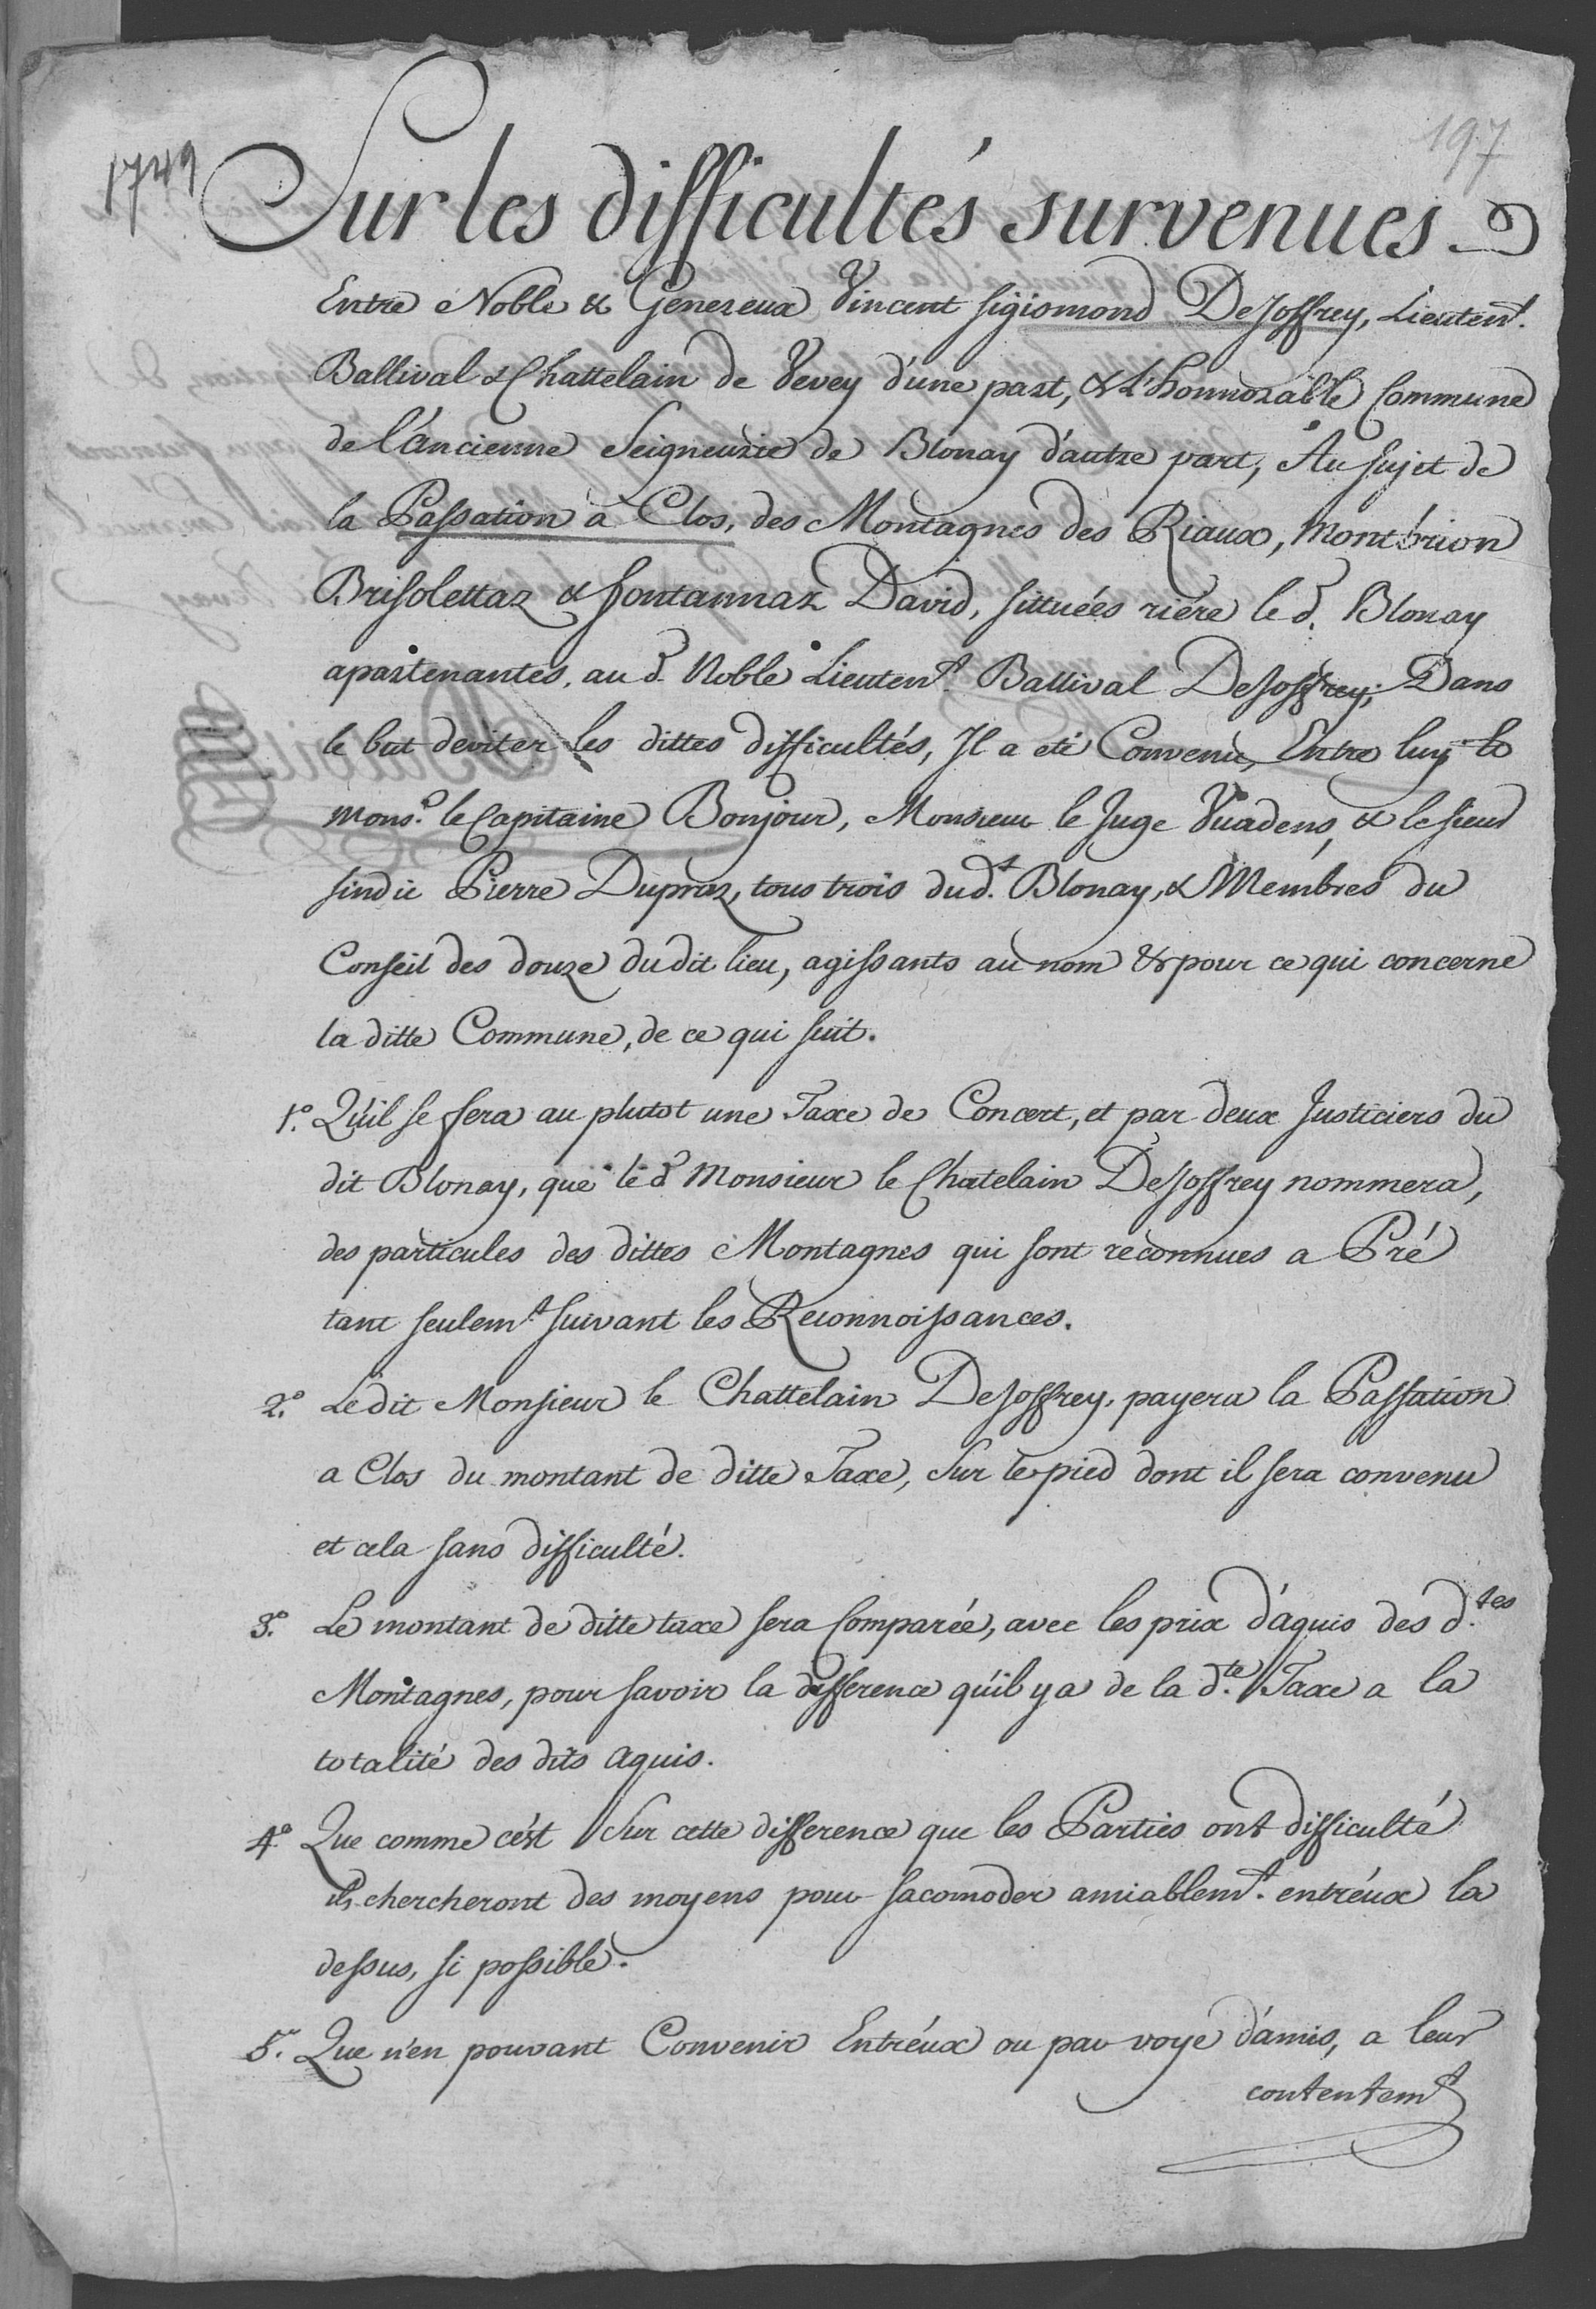 1749
197
Sur les difficultés survenues
Entre Noble & Genereux Vincent Sigismond DeJoffrey, Lieutent.
Ballival & Chattelain de Vevey d'une part, & L'honnorable Commune
de l'ancienne Seigneurie de Blonay d'autre part, Au sujet de
la Passation à Clos, des Montagnes des Riaux, Montbrion
Brisolettaz & fontannaz David, sittuées riére le d. Blonay
apartenantes, au d. Noble Lieutent. Ballival DeJoffrey; Dans
le but d'eviter les dittes difficultés, Il a eté Convenu, Entre luy &
Monsr. le Capitaine Bonjour, Monsieur le Juge Vuadens, & le sieur
sindic Pierre Dupraz, tous trois dudt. Blonay, & Membres du
Conseil des douze dudit lieu, agissants au nom & pour ce qui concerne
la ditte Commune, de ce qui suit.
1o. Qu'il se fera au plutot une Taxe de Concert, et par deux Justiciers du
dit Blonay, que le d. Monsieur le Chatelain DeJoffrey nommera,
des particules des dittes Montagnes qui sont reconnues a Pré
tant seulemt. suivant les Reconnoissances.
2o. Le dit Monsieur le Chattelain DeJoffrey, payera la Passation
a Clos du montant de ditte Taxe, Sur le pied dont il sera convenu
et cela sans difficulté.
3o. Le montant de ditte taxe sera Comparée, avec les prix d'aquis des d.tes
Montagnes, pour savoir la difference qu'il y a de la d.te Taxe a la
totalité des dits aquis.
4o Que comme c'est Sur cette difference que les Parties ont difficulté
ils chercheront des moyens pour s'acomoder amiablemt. entr'eux la
dessus, si possible.
5o. Que n'en pouvant Convenir Entr'eux ou par voye d'amis, a leur
contentemt